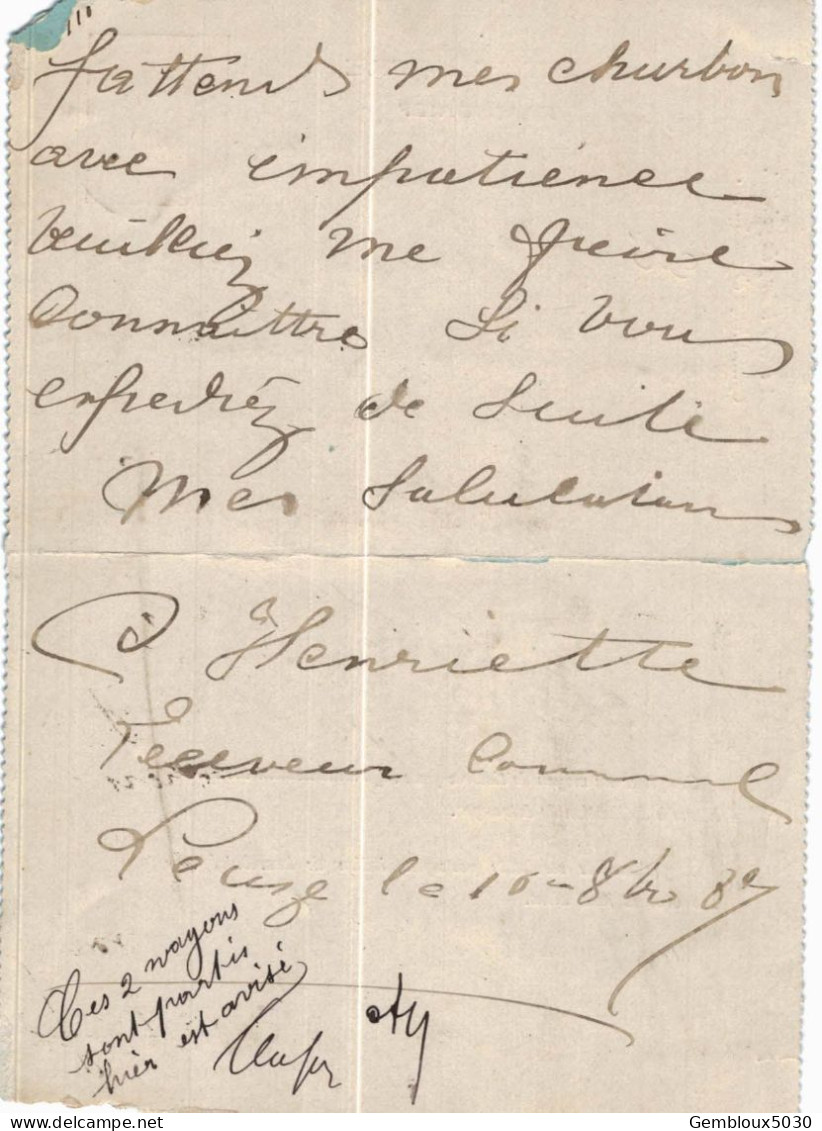 110
J'attends mes charbons
avec impatience
veuilliez me faire
connaittre si vous
expediéz de suite
Mes Salutations
Henriette
Receveur Communal
Leuze le 10 8bre 8
Ces 2 wagons
sont partis
hier est avisé
Gembloux5030